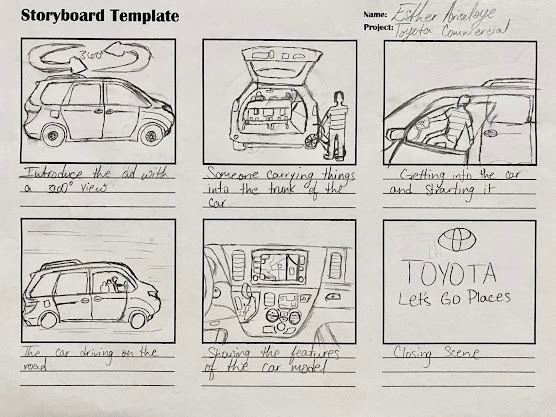 Storyboard Template
Name: Esther
Project: Toyota Commercial
360°
Introduce the ad with
a 360° view
Someone carrying things
into the trunk of the
car
Getting into the car
and starting it
The car driving on the
road
Showing the features
of the car model
TOYOTA
Let's Go Places
Closing Scene